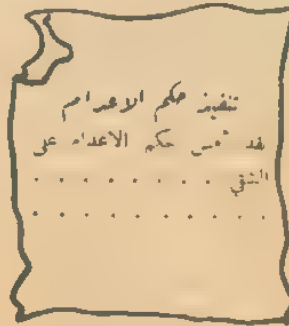 تنفيذ حكم الاعدام
نفذ أمس حكم الاعدام على
الشقي . . . . . . . . .
. . . . . . . . . . . .